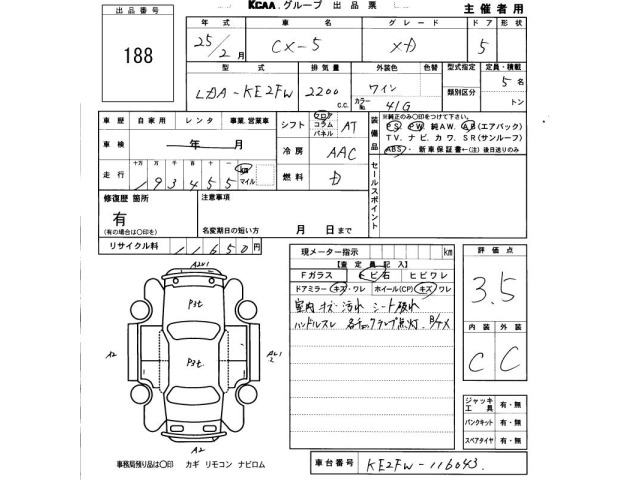 KCAA グループ 出品票 主催者用
出品番号
188
年式 車名 グレード ドア 形状
25/2月 CX-5 XD 5
型式 排気量 外装色 色替 型式指定 定員・積載
LDA-KE2FW 2200 c.c. ワイン 類別区分 5名
カラーNo. 41G トン
車歴 自家用 レンタ 事業.営業車
シフト フロア コラム パネル AT
装備品
※純正のみ○印をつけて下さい。
PS PW 純AW. AB(エアバック)
TV. ナビ. カワ. SR(サンルーフ)
ABS・ 新車保証書←(注)後日送りのみ
車検 年 月
冷房 AAC
セールスポイント
走行 十万 万 千 百 十 一
193455 km マイル
燃料 D
修復歴 箇所
有
(有の場合は○印を)
注意事項
名変期日の短い方 月 日まで
リサイクル料 11650円
現メーター指示 km
【査定員記入】
Fガラス ヒビ石 ヒビワレ
ドアミラー キズ・ワレ ホイール(CP) キズ ワレ
室内キズ 汚れ シート破れ
ハンドルスレ
評価点
3.5
内装 外装
C C
A2U1
Pst.
A2
Pst.
A2
ジャッキ 工具 有・無
パンクキット 有・無
スペアタイヤ 有・無
事務局預り品は○印 カギ リモコン ナビロム
車台番号 KE2FW-116043.